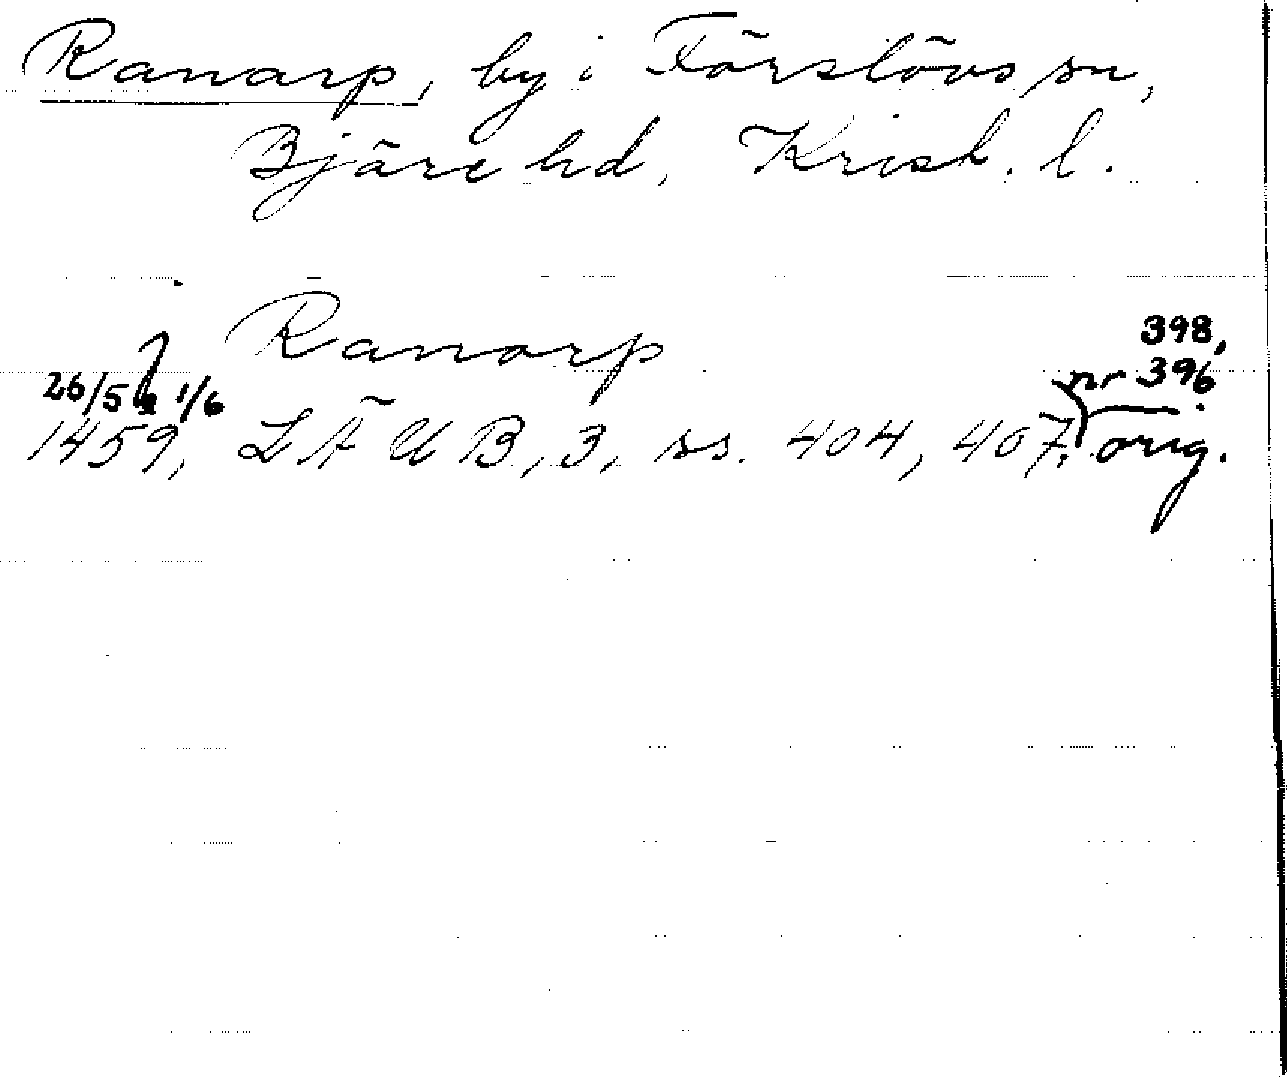 Ranarp, by i Förslövs sn,
Bjäre hd, Krist. l.
Ranarp
398,
26/5 & 1/6
nr 396
1459, LÄUB, 3, ss. 404, 407. orig.